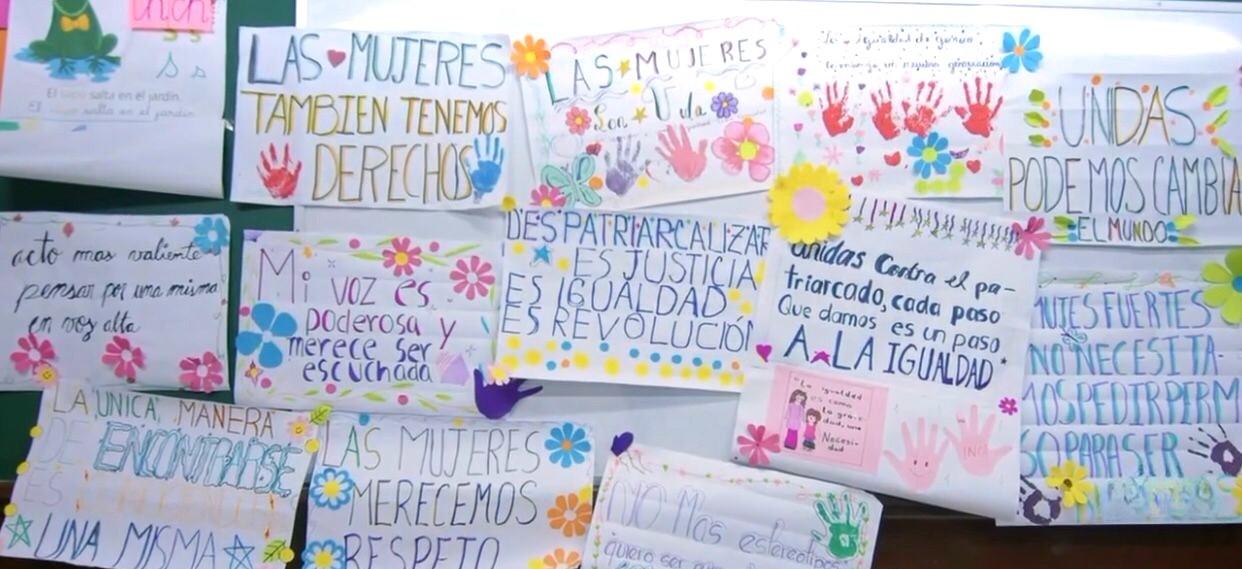 El sapo salta en el jardín.
El sapo salta en el jardín
LAS MUJERES
TAMBIEN TENEMOS
DERECHOS
LAS MUJERES
Son Vida
igualdad de género
UNIDAS
PODEMOS CAMBIA
EL MUNDO
acto mas valiente
pensar por una misma
en voz alta
Mi voz es
poderosa y
merece ser
escuchada
DESPATRIARCALIZAR
ES JUSTICIA
ES IGUALDAD
ES REVOLUCIÓN
unidas contra el pa-
triarcado, cada paso
Que damos es un paso
A LA IGUALDAD
"La igualdad
es como
la grave-
dad, una
Necesi-
dad
FUERTES
NO NECESITA-
MOS PEDIR PERM
SO PARA SER
LA UNICA MANERA
DE ENCONTRARSE
ES
UNA MISMA
LAS MUJERES
MERECEMOS
RESPETO
NO Mas estereotipos
quiero ser